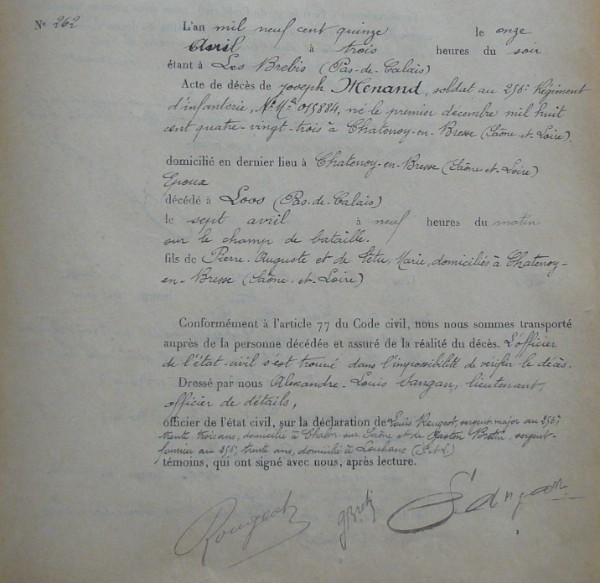 N° 262
L'an mil neuf cent quinze le onze
avril à trois heures du soir
étant à Les Brebis (Pas-de-Calais)
Acte de décès de Joseph Menand, soldat au 256e Régiment
d'infanterie, N° Mle 015884, né le premier décembre mil huit
cent quatre-vingt-trois à Chatenoy-en-Bresse (Saône et Loire),
domicilié en dernier lieu à Chatenoy-en-Bresse (Saône-et-Loire)
Epoux
décédé à Loos (Pas-de-Calais)
le sept avril à neuf heures du matin
sur le champ de bataille.
fils de Pierre-Auguste et de Marie, domiciliés à Chatenoy-
en-Bresse (Saône-et-Loire)
Conformément à l'article 77 du Code civil, nous nous sommes transporté
auprès de la personne décédée et assuré de la réalité du décès. L'officier
de l'état-civil s'est trouvé dans l'impossibilité de vérifier le décès.
Dressé par nous Alexandre-Louis Sangan, lieutenant,
officier de détails,
officier de l'état civil, sur la déclaration de Louis Rougeot, sergent major au 256e,
trente trois ans, domicilié à Chalon-sur-Saône et de Gaston Bretin, sergent-
fourrier au 256e, trente ans, domicilié à Louhans (S.-et-L.)
témoins, qui ont signé avec nous, après lecture.
Rougeot Sangan